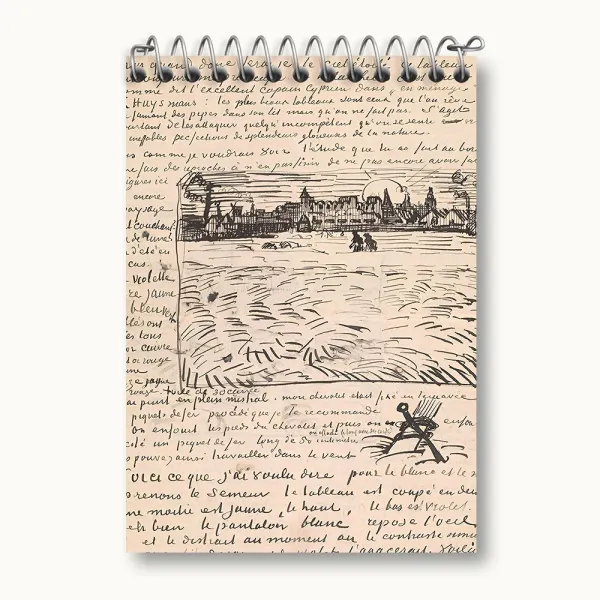 quand donc ferai je le ciel étoilé ce tableau
comme dit l'excellent copain Cyprien dans en ménage
HUYSmans : les plus beaux tableaux sont ceux que l'on rêve
fumant des pipes dans son lit mais qu'on ne fait pas. S'agit
pourtant de les attaquer quelqu'incompétent qu'on se sente vis
ineffables perfections de splendeurs glorieuses de la nature.
comme je voudrais voir l'étude que tu as fait au bor
fais des reproches à n'en pas finir de ne pas encore avoir fai
figures ici
encore
paysage
t couchant
de lune
d'été en
cas.
violette
re jaune
bleu vert
blés ont
les tons
or cuivre
or rouge
une
jaune
rouge. toile de 30 carrée
peint en plein mistral. mon chevalet était fixé en terre avec
piquets de fer procédé que je te recommande
on enfouit les pieds du chevalet et puis on enfon
côté un piquet de fer long de 50 centimètres
pouvez ainsi travailler dans le vent
voici ce que j'ai voulu dire pour le blanc et le n
prenons le Semeur le tableau est coupé en deu
ne moitié est jaune, le haut, le bas est violet.
eh bien le pantalon blanc repose l'oeil
et le distrait au moment où le contraste simu
l'agacerait. voilà